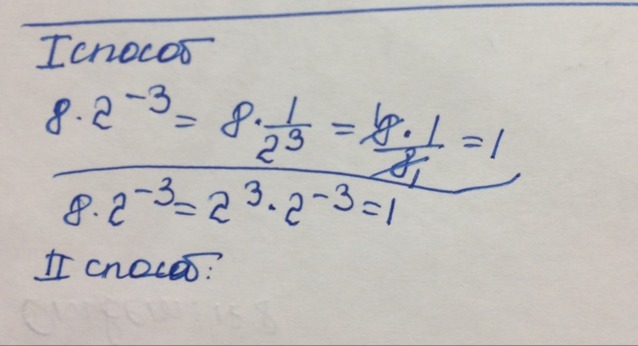 I способ
8 · 2⁻³ = 8 · 1/2³ = 8 · 1/8 = 1
8 · 2⁻³ = 2³ · 2⁻³ = 1
II способ: